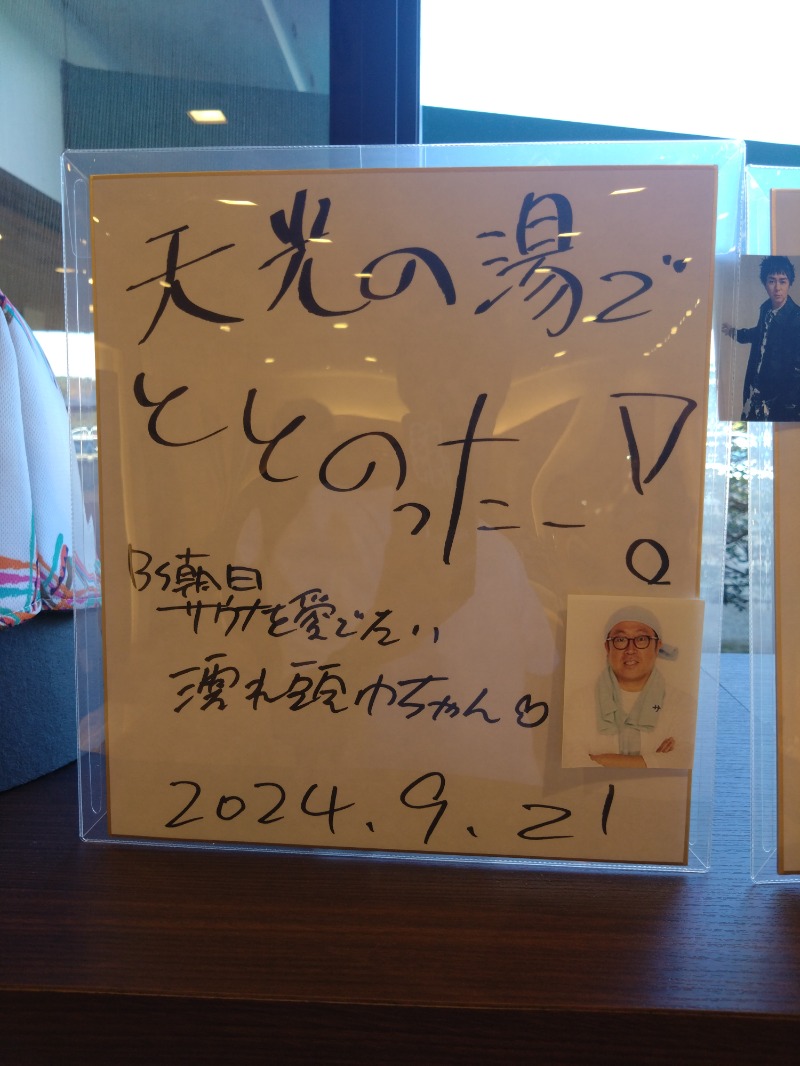 天光の湯で
ととのったー!
BS朝日
サウナを愛でたい
濡れ頭巾ちゃん♡
2024.9.21
サ